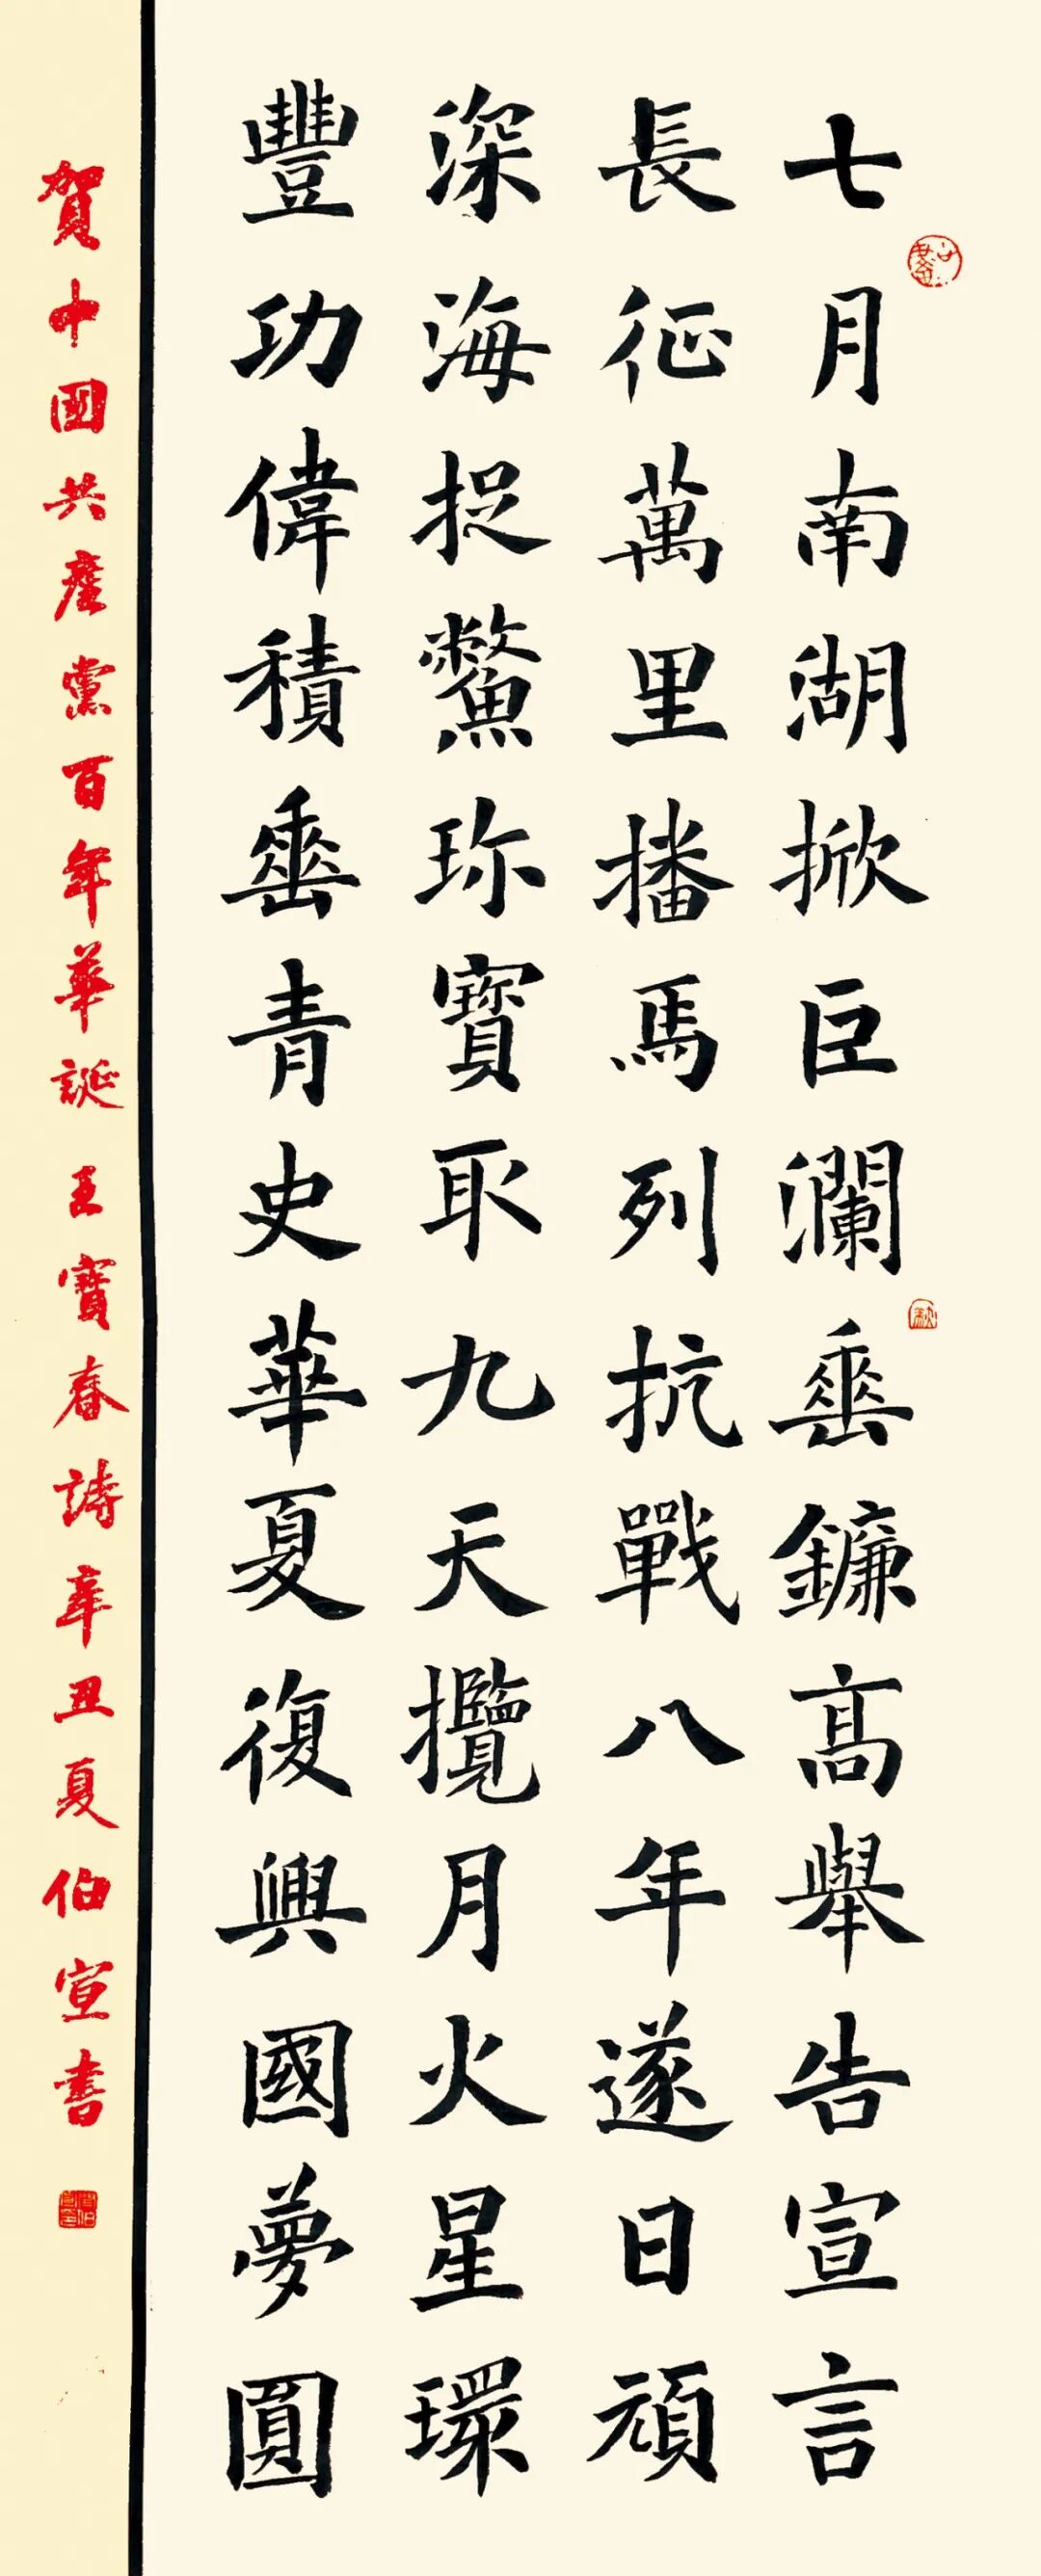 七月南湖掀巨瀾垂鐮高舉告宣言
長征萬里播馬列抗戰八年逐日頑
深海捉鱉珍寶取九天攬月火星環
豐功偉積垂青史華夏復興國夢圓
賀中國共產黨百年華誕 王寶春詩辛丑夏伯宣書